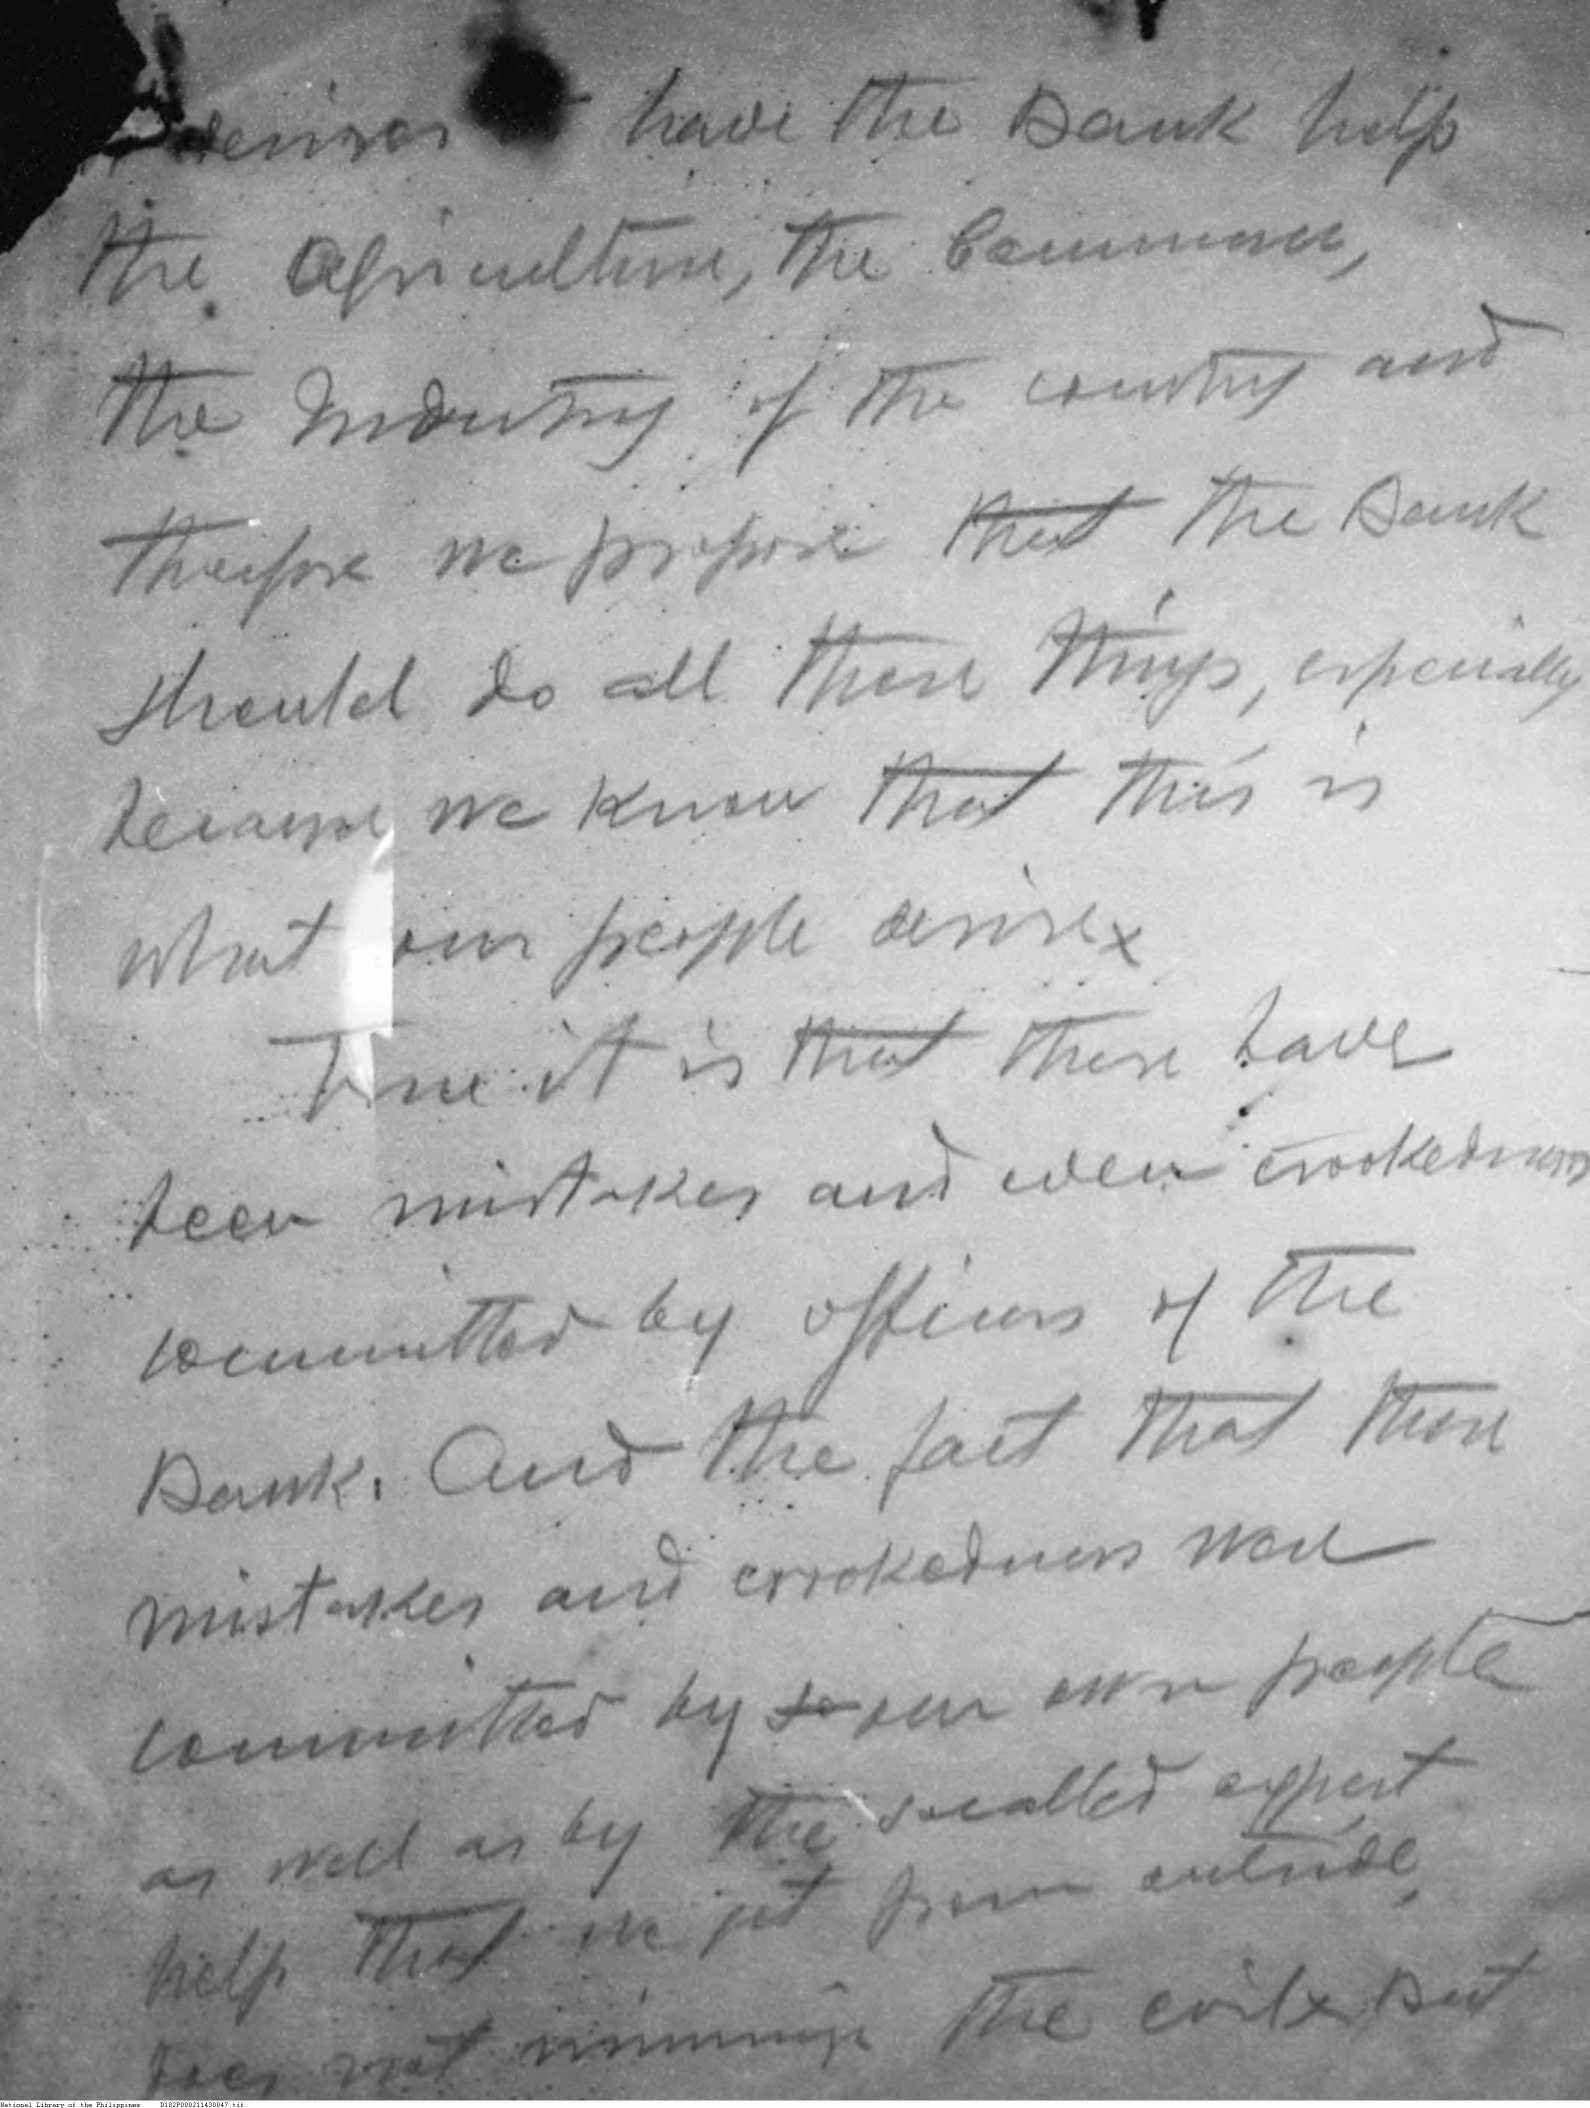 desires to have the Bank help
the Agriculture, the Commerce,
the Industry of the country and
therefore we propose that the Bank
should do all these things, especially
because we know that this is
what our people desire x
True it is that there have
been mistakes and even crookedness
committed by officers of the
Bank. And the fact that these
mistakes and crookedness were
committed by so our own people
as well as by the socalled expert
help that we get from outside,
does not minimize the evil x But
National Library of the Philippines D182P000211430047.tif